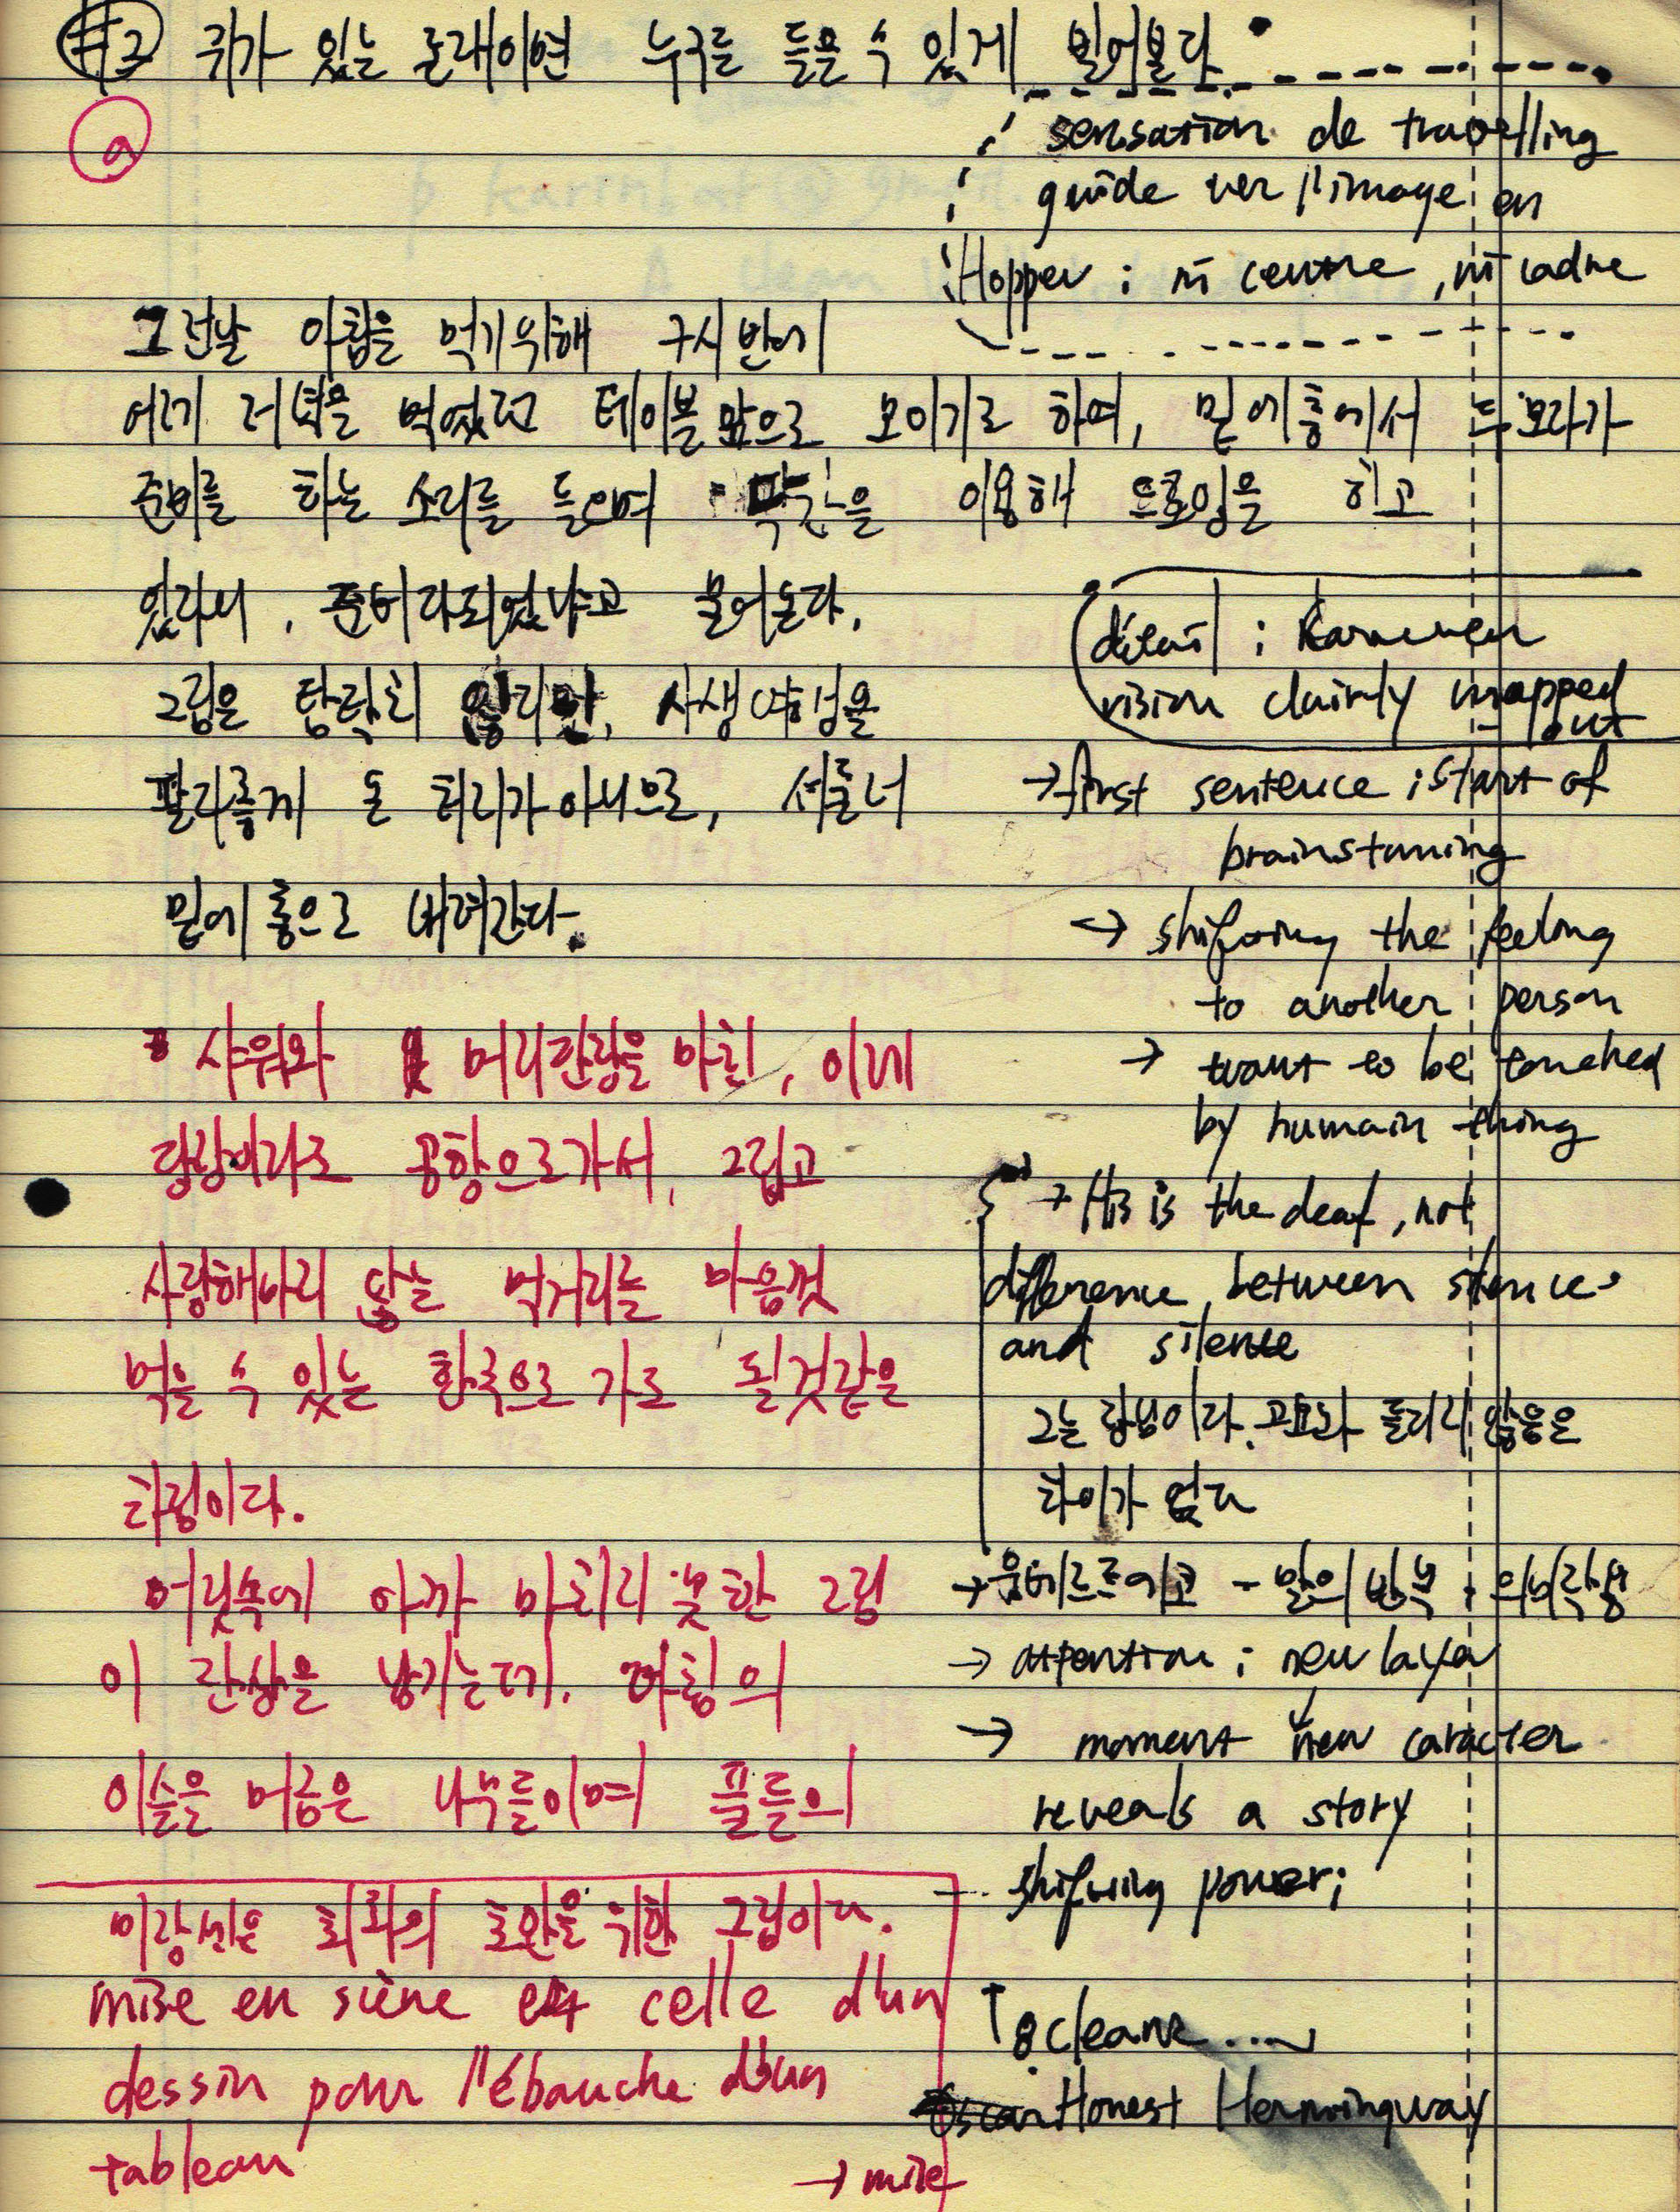 #2 귀가 있는 존재이면 누구를 들을 수 있게 빌어본다.
ⓐ
sensation de travelling
guide ver l'image en
Hopper : ni centre, ni cadre
그런날 아침을 먹기위해 9시반에
어제 저녁을 먹었던 테이블 앞으로 모이기로 하며, 밑에층에서 드보라가
준비를 하는 소리를 들으며 막간을 이용해 드로잉을 하고
있자니, 준비다되었냐고 물어온다.
그림은 탐탁치 않지만, 시생여성을
팔자좋게 돈 처리가아니므로, 서둘너
밑에층으로 내려간다.
détail : 
vision clairly mapped
out
→ first sentence : start of
brainstorming
→ shifting the feeling
to another person
→ want to be touched
by humain thing
→ He is the deaf, not
difference between silence
and silence
그는 장님이다. 고요와 들리지 않음은
차이가 없다
→ 움베르트에코 - 말의 반복 ·
→ attention : new layer
→ moment new caracter
reveals a story
shifting power;
샤워와 머리단장을 마친, 이제
당장이라도 공항으로가서, 그립고
사랑해마지 않는 먹거리를 마음껏
먹을 수 있는 한국으로 가도 될것같은
차림이다.
머릿속에 아까 마치지 못한 그림
이 잔상을 남기는데. 아침의
이슬을 머금은 나무들이며 풀들의
미장센은 회화의 초안을 위한 그림이다.
mise en scène est celle d'un
dessin pour l'ébauche d'un
tableau
→ mise
↑ a cleane ....
Honest Hermingway